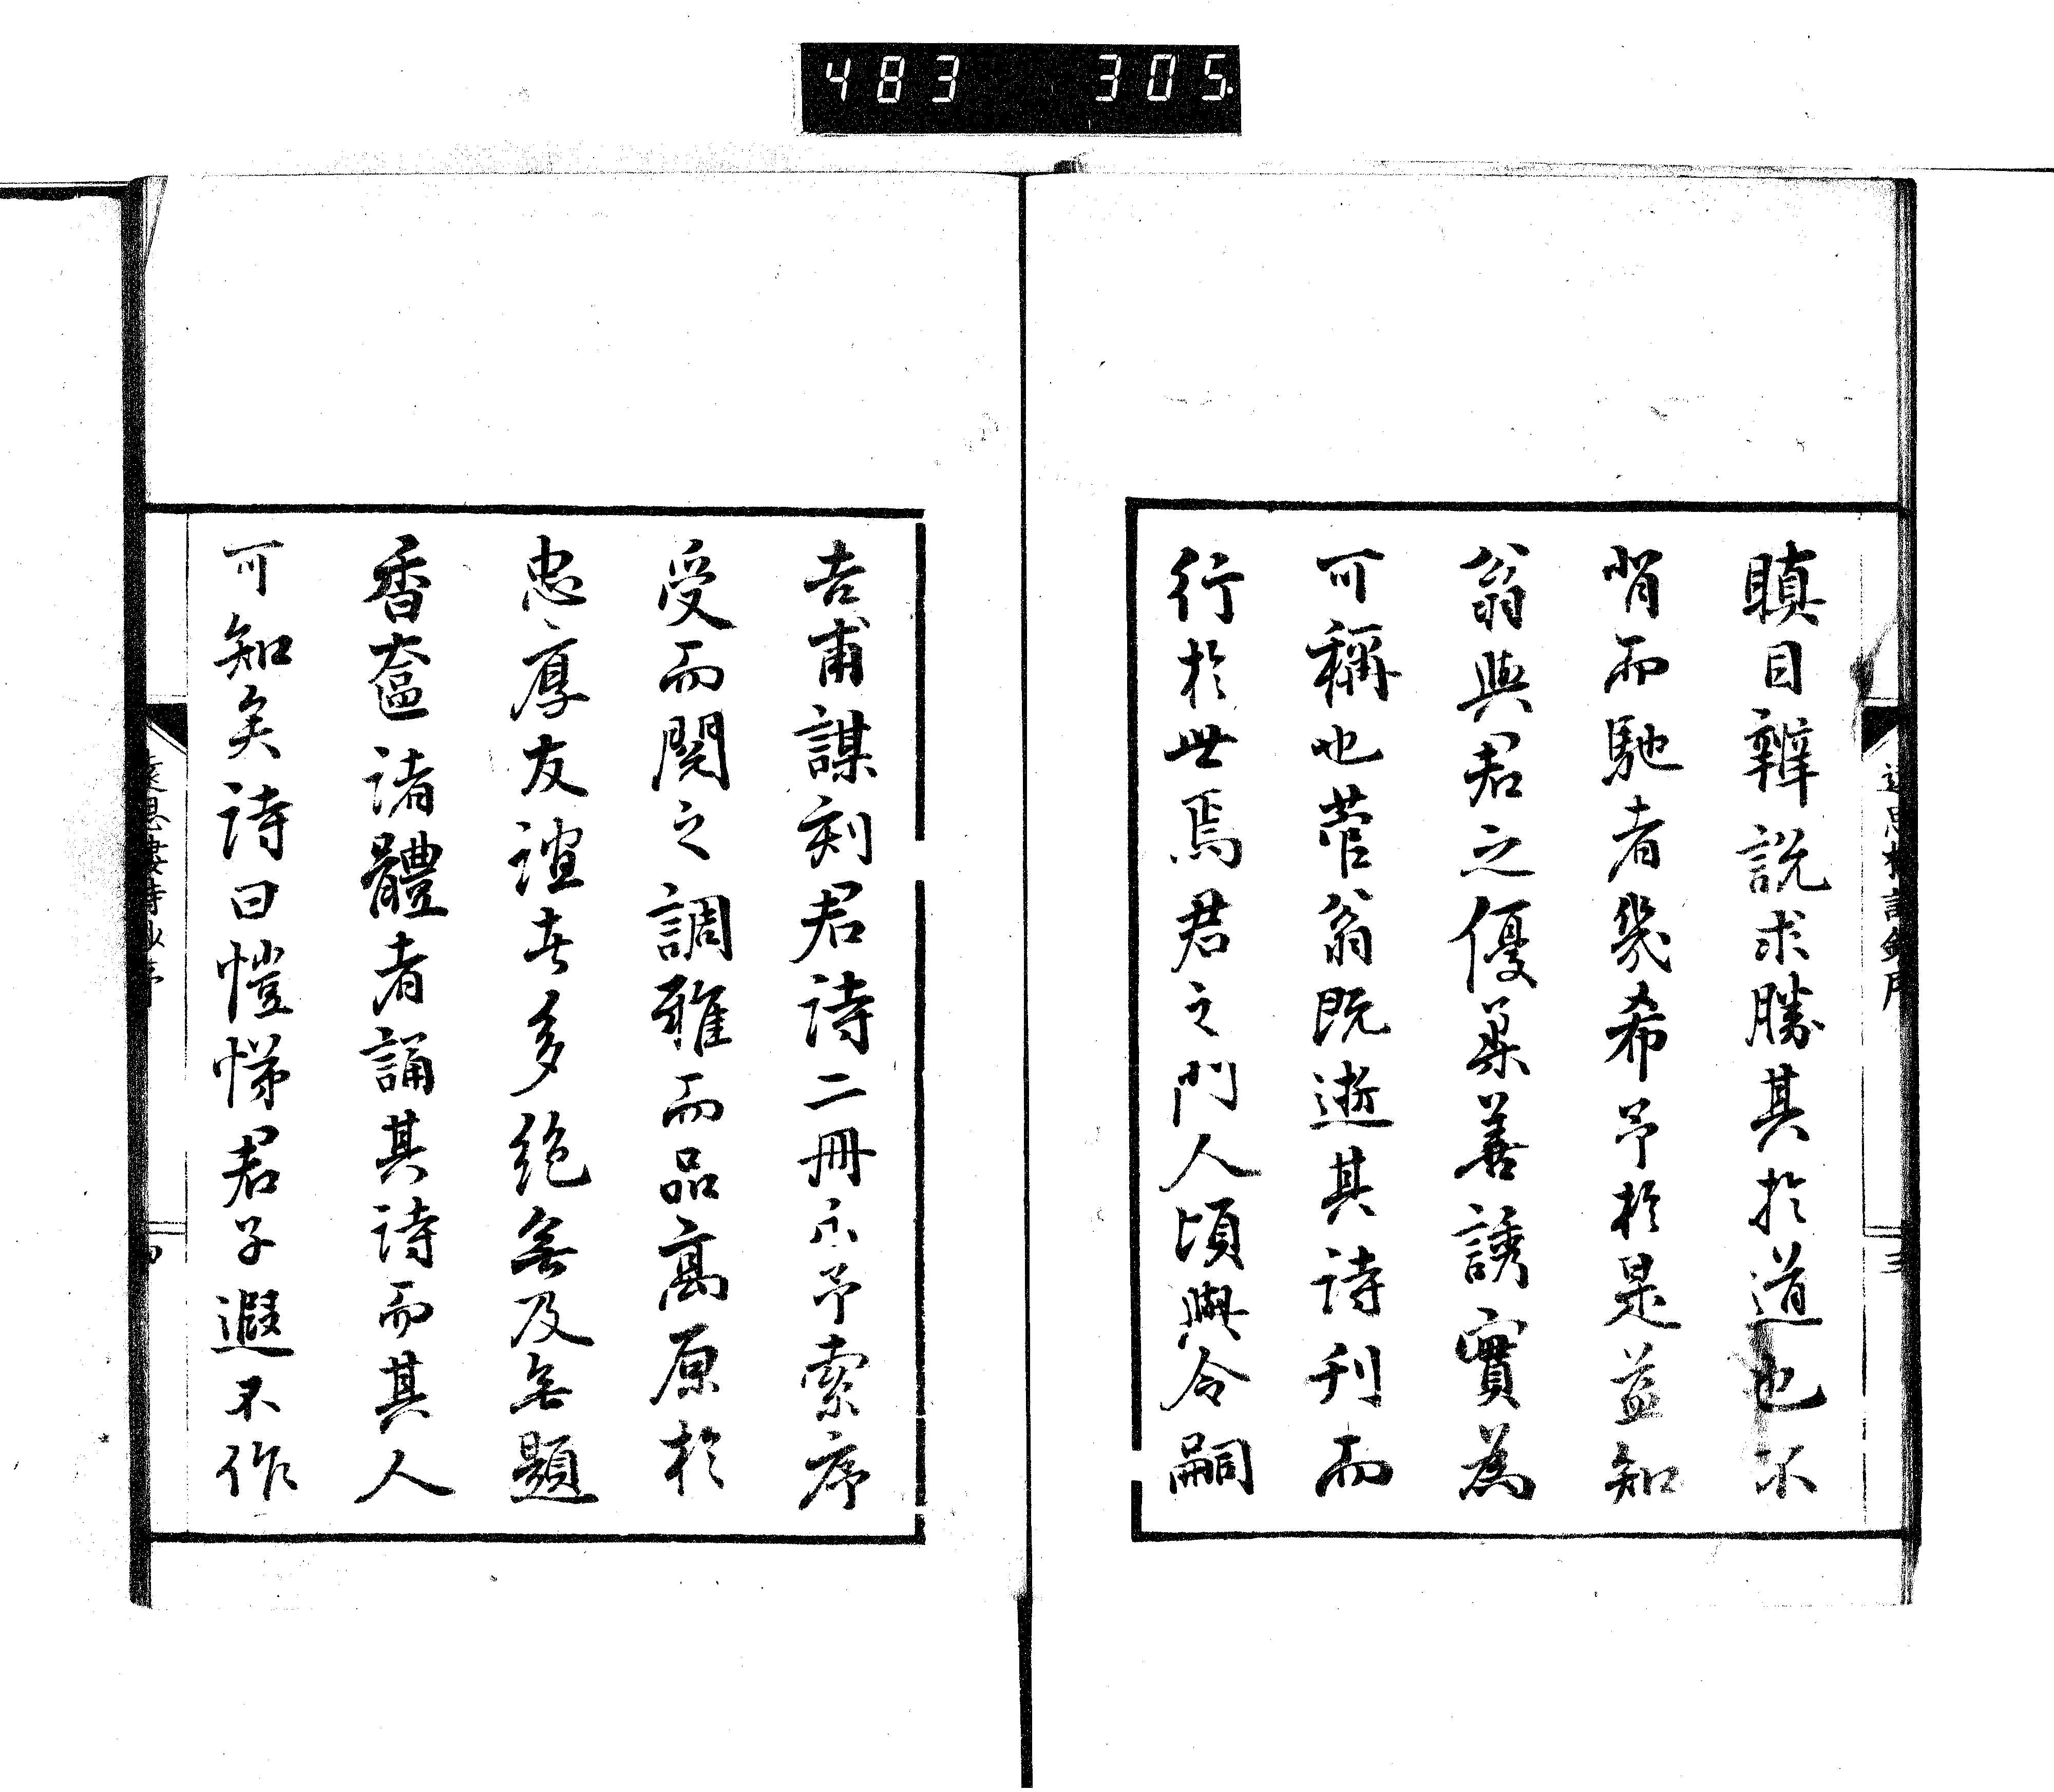 483 305
瞋目辯説求勝其於道也不
背而馳者幾希予於是益知
翁與君之優柔善誘實為
可稱也菅翁既逝其詩刊而
行於世焉君之門人頃與令嗣
吉甫謀刻君詩二冊示予索序
受而閱之調雅而品高原於
忠厚友誼者多絕無及無題
香奩諸體者誦其詩而其人
可知矣詩曰愷悌君子遐不作